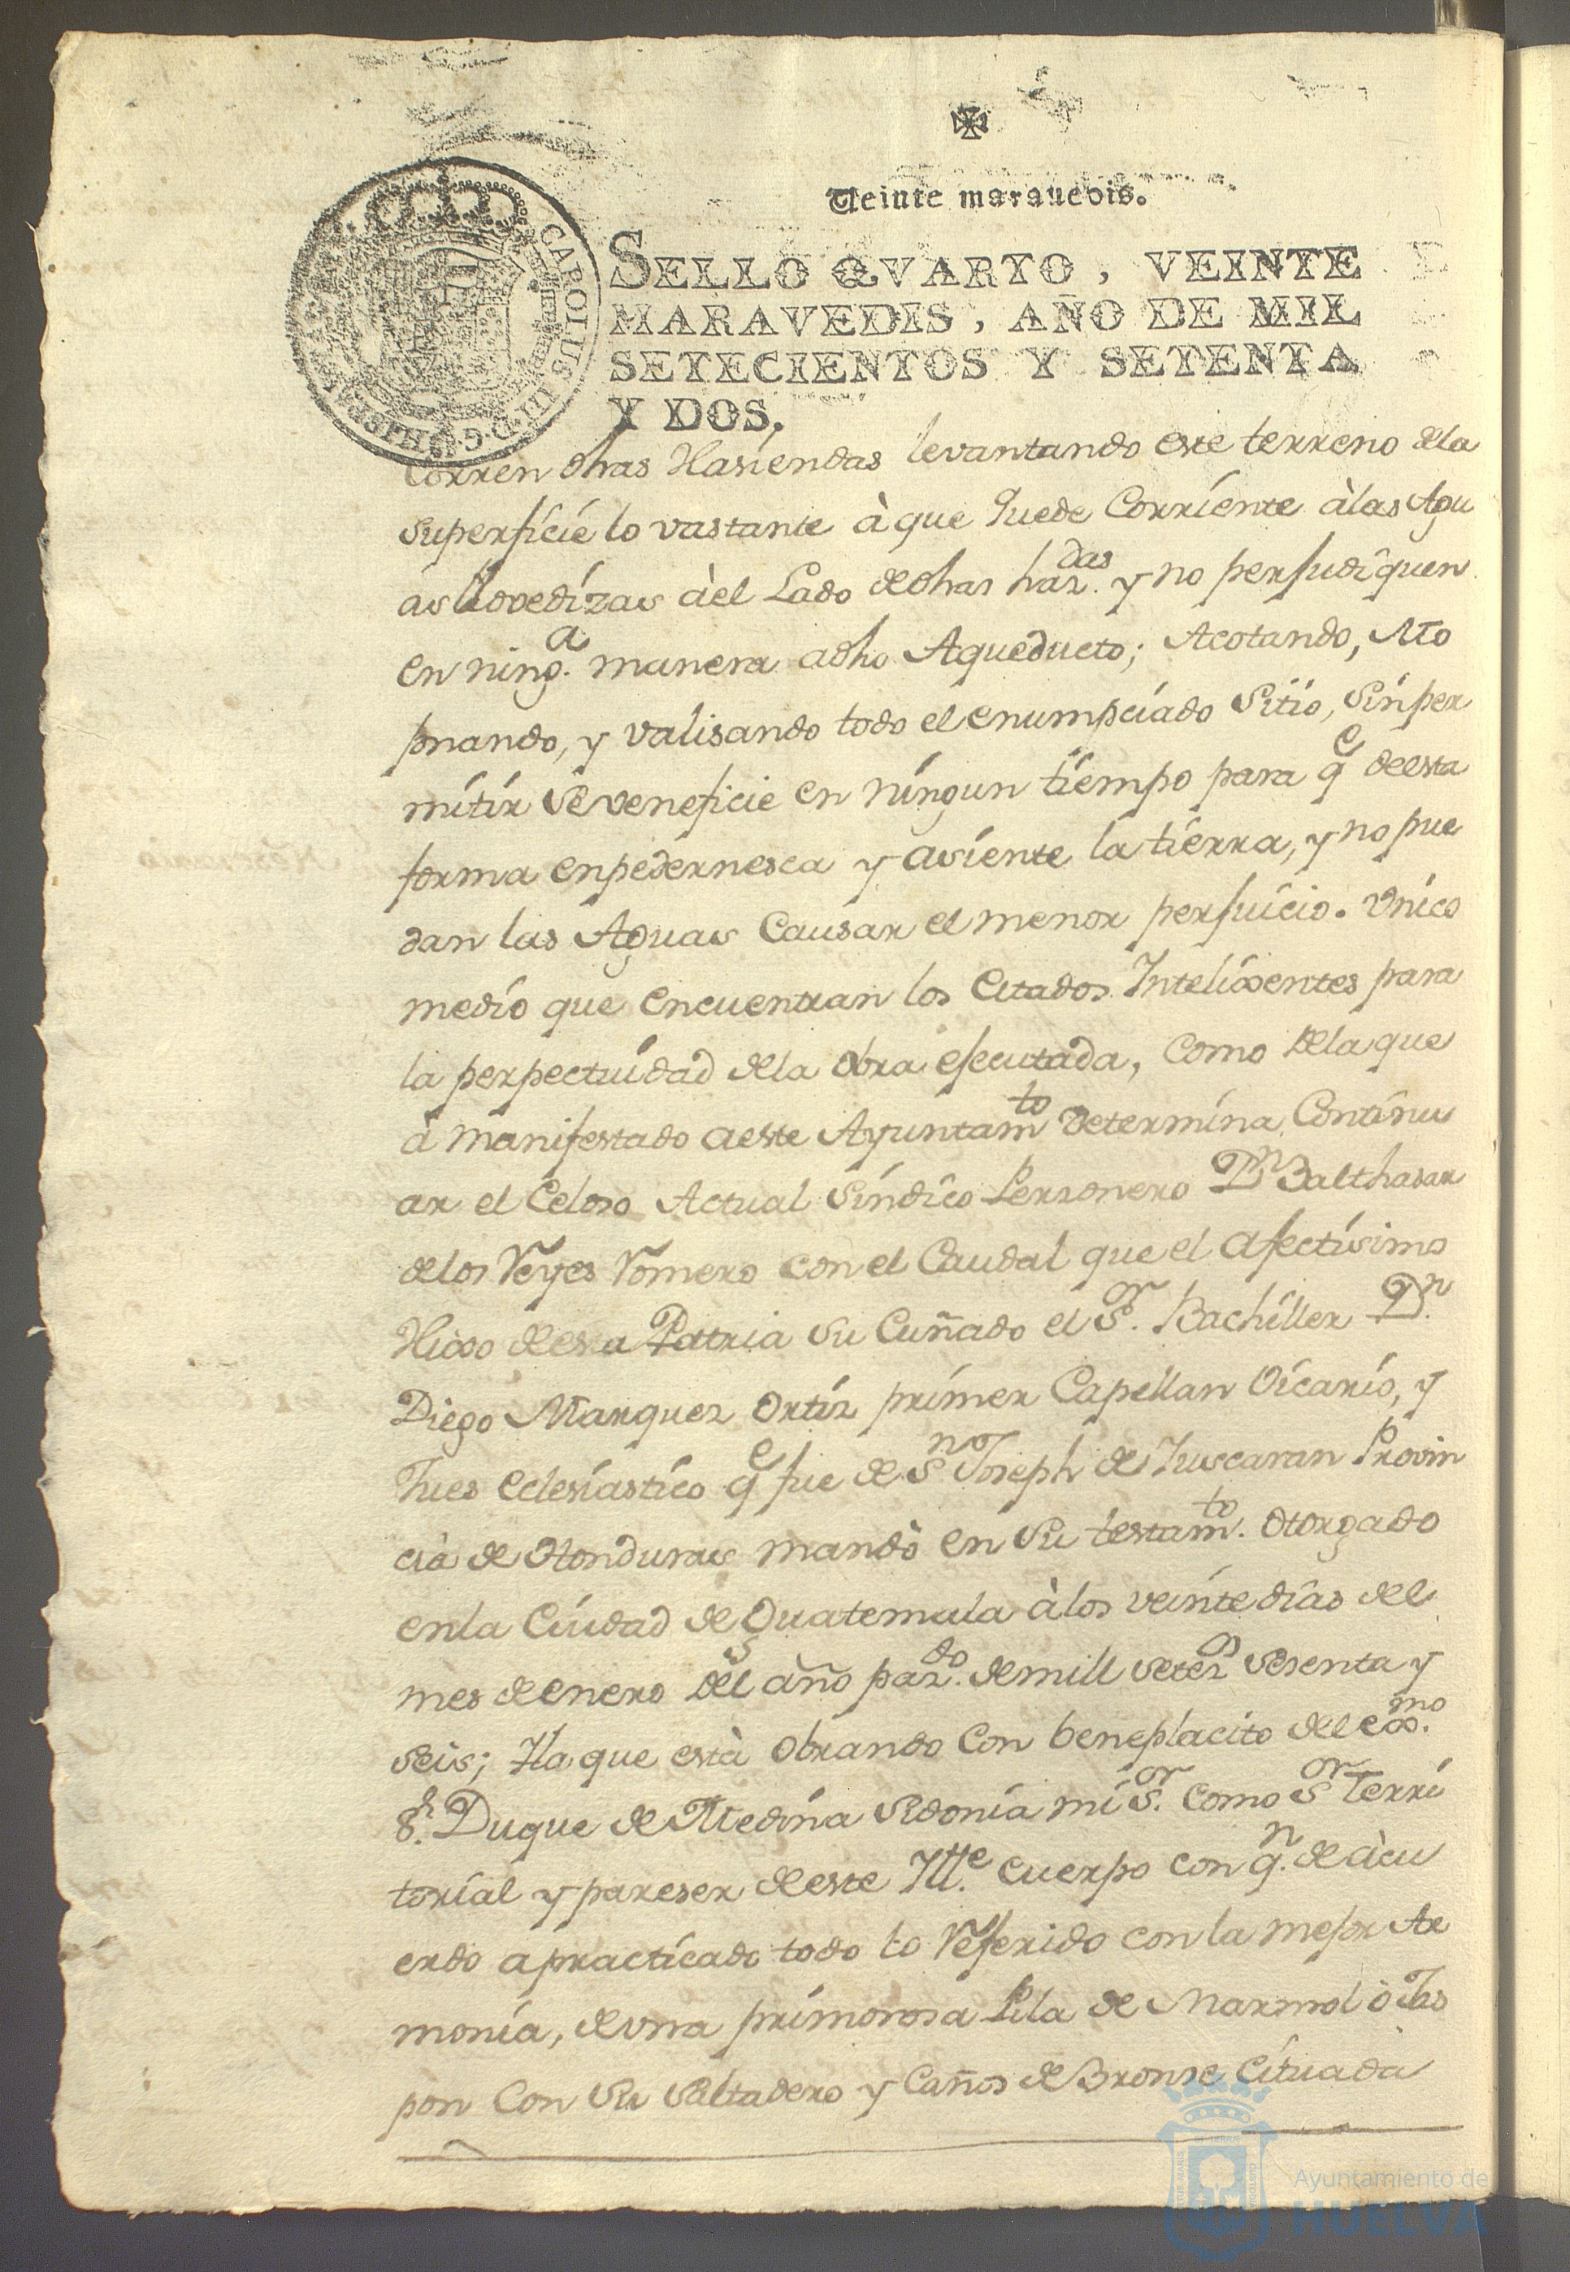 Veinte marauedis.
CAROLUS III D. G. HISPAN
SELLO QVARTO, VEINTE
MARAVEDIS, AÑO DE MIL
SETECIENTOS Y SETENTA
Y DOS.
Corren dhas Hasiendas levantando este terreno dela
superficie lo vastante à que quede Corriente àlas Agu
as llovedizas àel Lado dedhas haz.das y no perjudiquen
en ning.a manera adho Aqueducto; Acotando, Mo
jonando, y valisando todo el enumpciado Sitio, sin per
mitir se veneficie en ningun tiempo para qe deesta
forma enpedernesca y asiente la tierra, y no pue
dan las Aguas Causar el menor perjuicio. Vnico
medio que encuentran los Citados Intelixentes para
la perpectuidad dela obra ejecutada, como dela que
à manifestado aeste Ayuntamto determina Continu
ar el Celoso Actual Sindico Personero Dn Balthasar
delos Reyes Romero con el Caudal que el afectisimo
Hixo deesta Patria su Cuñado el Sor. Bachiller Dn.
Diego Marquez Ortiz primer Capellan Vicario, y
Jues eclesiastico qe fue de Sn Joseph de Yuscaran Provin
cia de Honduras mandò en su testamto. otorgado
enla Ciudad de Guatemala àlos veinte dias del
mes de enero del año pazdo. de mill setezs sesenta y
seis; Yla que està obrando Con beneplacito del exmo.
Sr. Duque de Medina Sidonia mi Sor. como Sor Terri
torial y pareser deeste Ille. cuerpo con qn. de àcu
erdo apracticado todo lo Referido con la mejor Ar
monia, de vna primorosa Pila de Marmol ò Jas
pon Con su Saltadero y Caños de Bronse Cituada
Ayuntamiento de
HUELVA